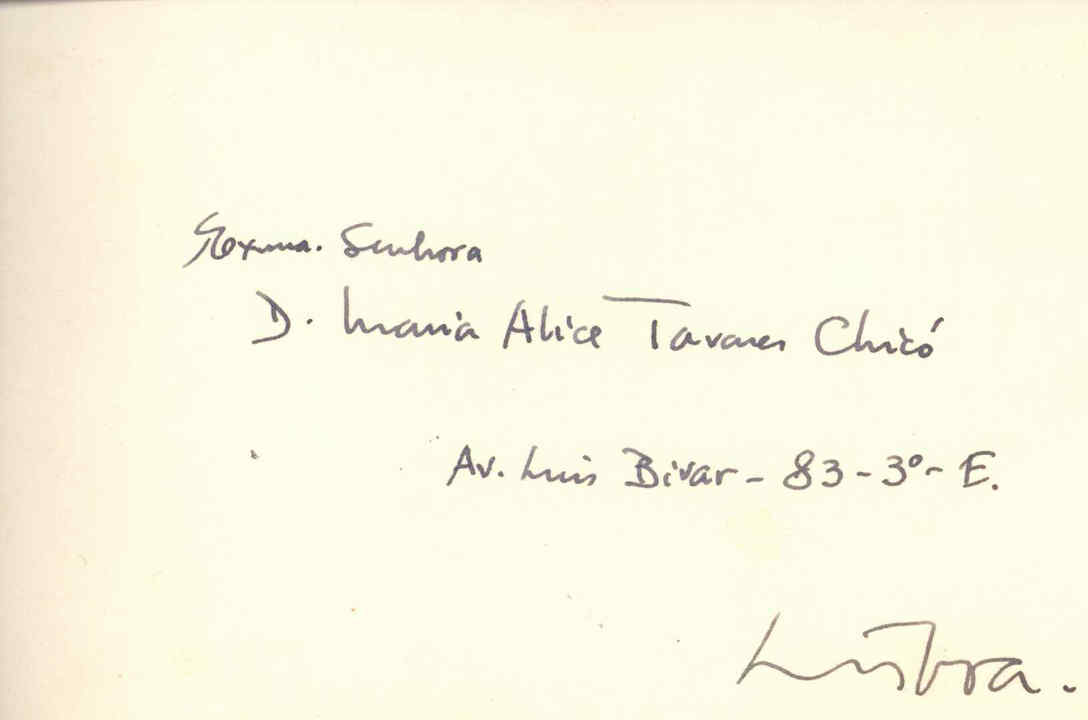 Exma. Senhora
D. Maria Alice Tavares Chicó
Av. Luis Bivar - 83 - 3º - E.
Lisboa.